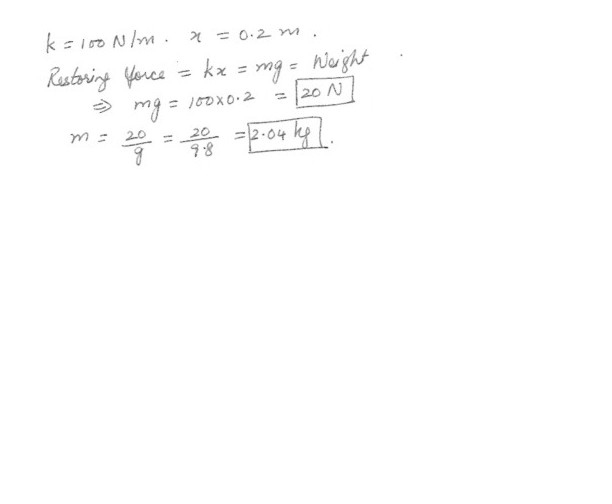 k = 100 N/m . x = 0.2 m .
Restoring force = kx = mg = Weight
⇒ mg = 100×0.2 = 20 N
m = 20/g = 20/9.8 = 2.04 kg .